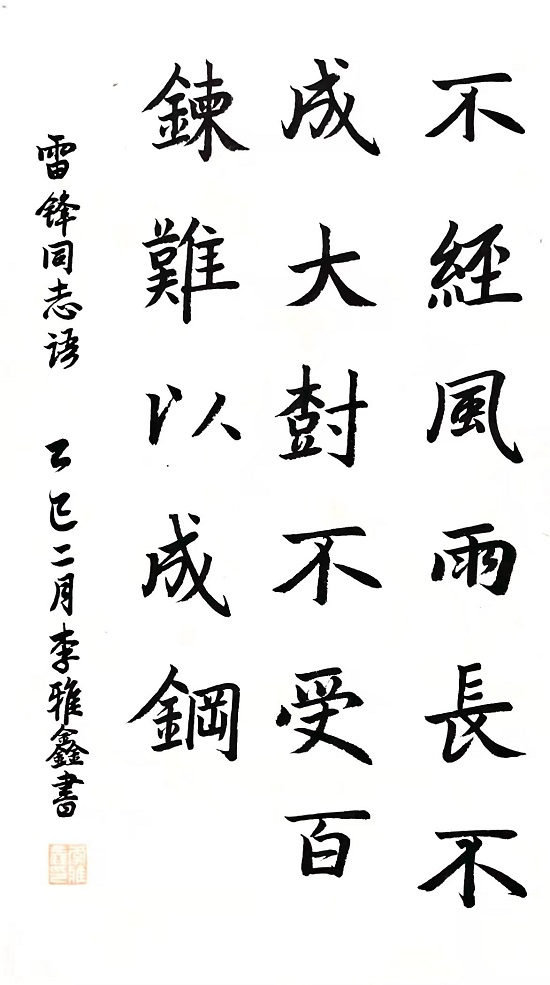 不經風雨長不
成大樹不受百
鍊難以成鋼
雷锋同志语 乙巳二月李雅鑫書